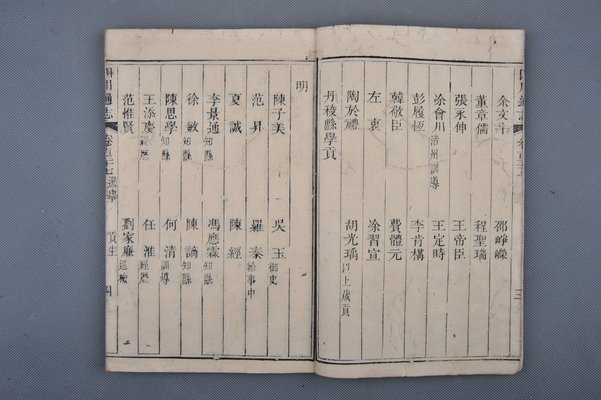 余文斗 鄒崢嶸
董章儒 程聖瑞
張永伸 王帝臣
徐會川涪州訓導 王定時
彭履恆 李肯構
韓敬臣 費體元
左衷 徐習宣
陶於禮 胡光瑀以上歲貢
丹稜縣學貢
明
陳子美 吳玉御史
范昇 羅泰給事中
夏誠 陳經
李景通知縣 馮應霖知縣
徐敏知縣 陳諭知縣
陳思學知縣 何清訓導
王添慶經歷 任淮經歷
范惟賢 劉家廉巡檢
四川通志 卷百二十七選舉 貢生 四